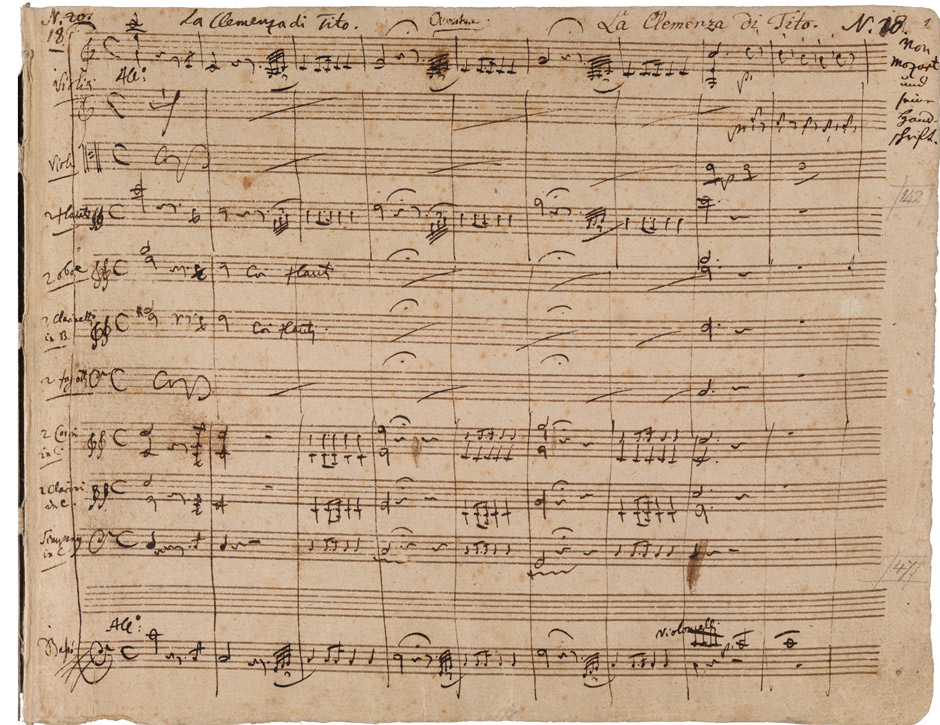 N. 20. La Clemenza di Tito. Overtura. La Clemenza di Tito. N. 10. 1
18
Von
Mozart
und
seine
Hand-
schrift.
All:º
Violini
Viole
2 flauti
142
2 oboe Coi flauti
2 Clarinetti
in B. Coi flauti
2 fagotti
2 Corni
in C.
2 Clarini
in C.
Tympany
in C.
147
All:º
Violoncelli
Baßi